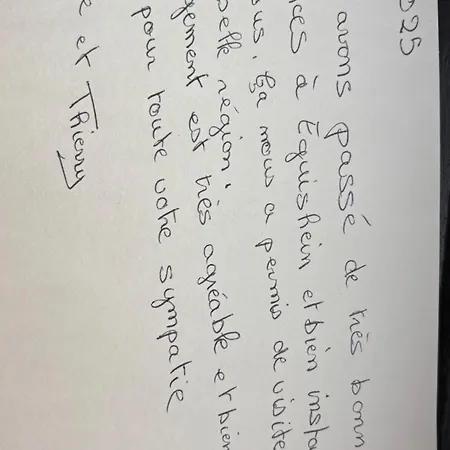 025
avons passé de très bonn
ces à Eguisheim et bien insta
ous. Ça nous a permis de visite
belle région.
gement est très agréable et bien
pour toute votre sympatie
e et Thierry